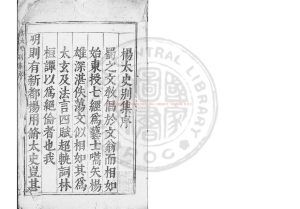 楊太史別集序
蜀之文教倡於文翁而相如
始東授七經為藝士嚆矢楊
雄深湛佚蕩文似相如其為
太玄及法言四賦超軼詞林
桓譚以為絕倫者也我
明則有新都楊用脩太史豈其
CENTRAL LIBRARY